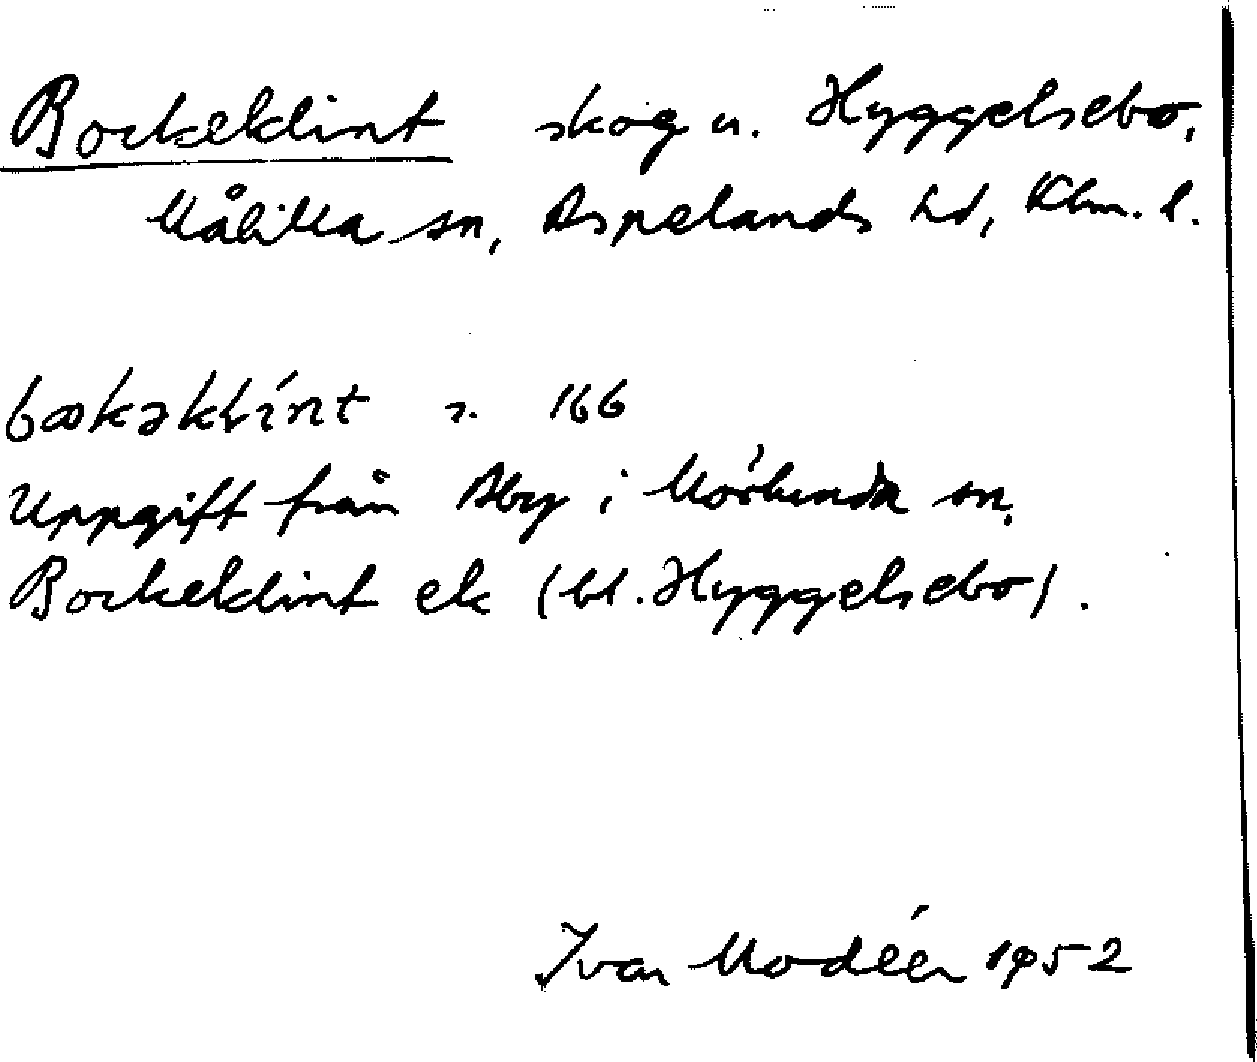 Bockeklint skog u. Hyggelsebo,
Målilla sn, Aspelands hd, Klm. l.
bɷkəklínt s. 166
Uppgift från Åby i Mörlunda sn.
Bockeklint ek (bl. Hyggelsebo).
Ivar Modéer 1952